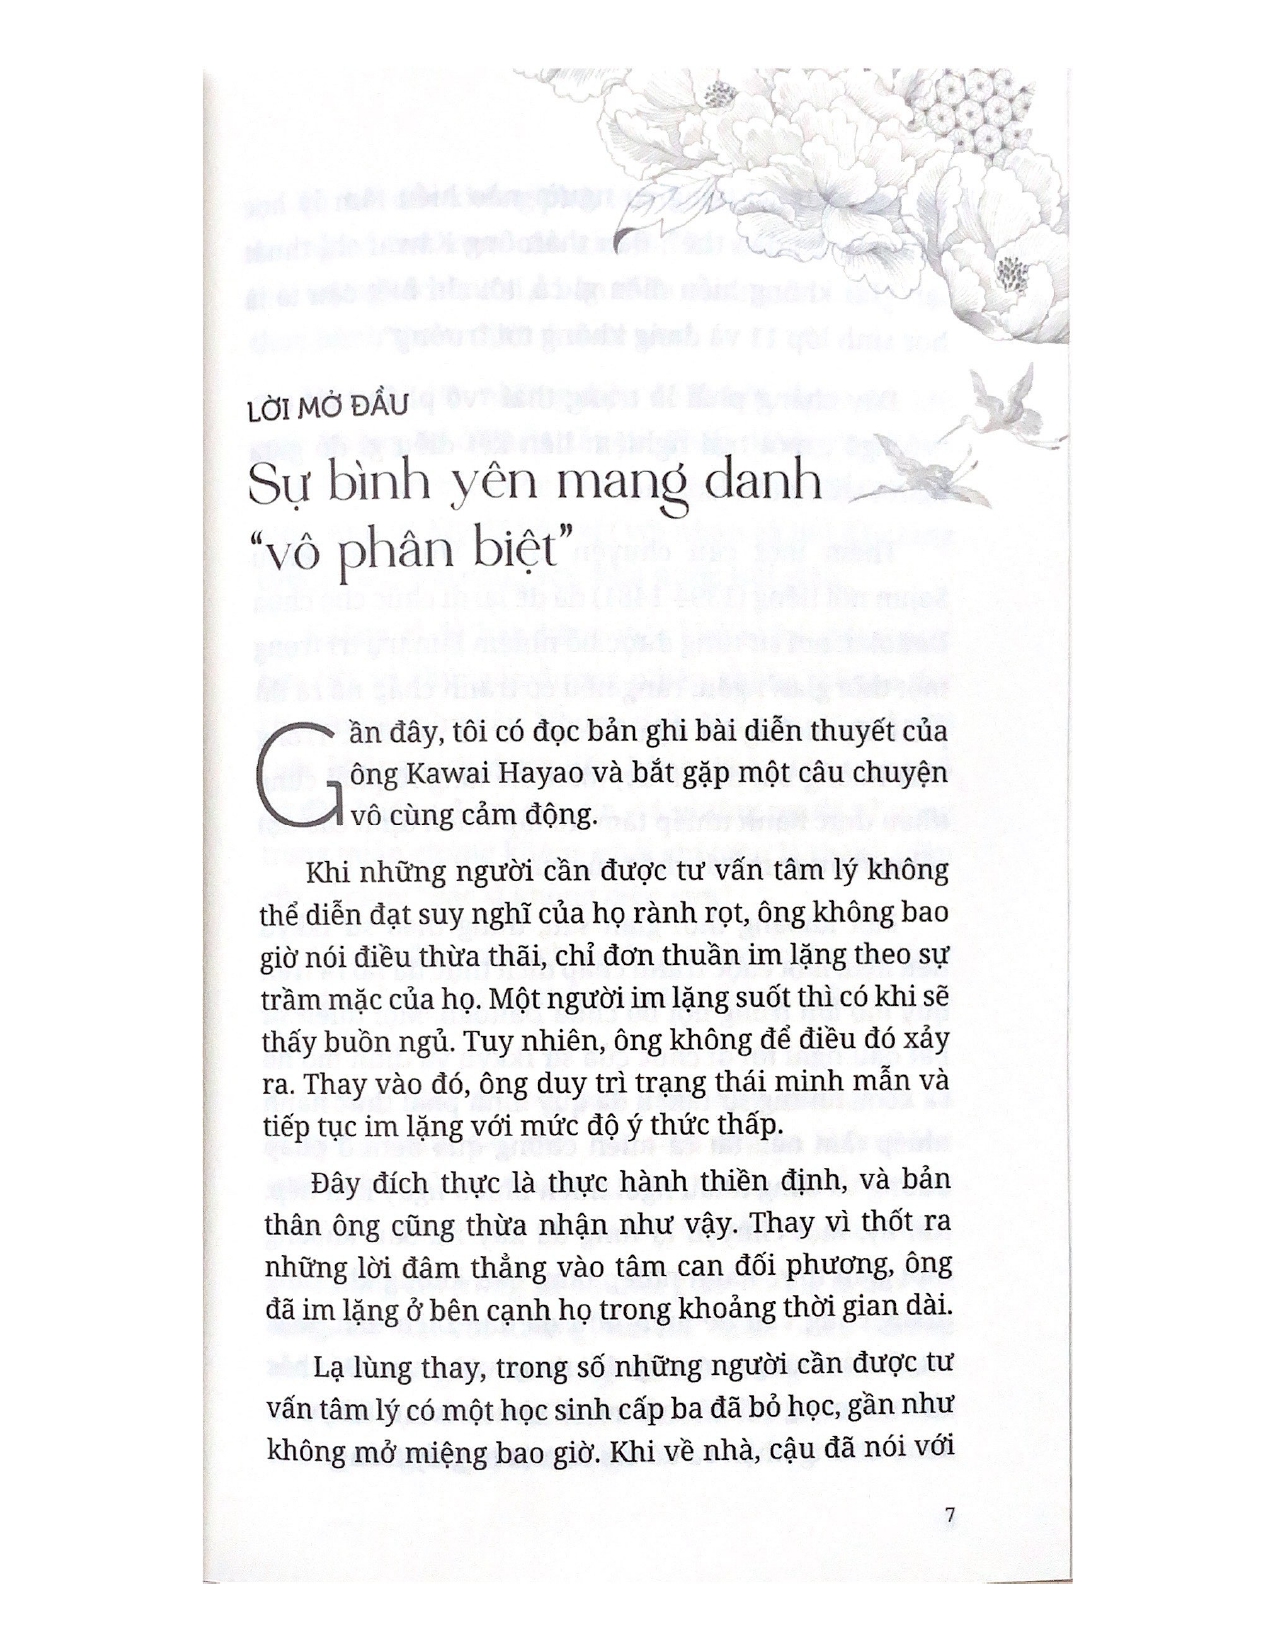 LỜI MỞ ĐẦU
Sự bình yên mang danh
“vô phân biệt”
Gần đây, tôi có đọc bản ghi bài diễn thuyết của
ông Kawai Hayao và bắt gặp một câu chuyện
vô cùng cảm động.
Khi những người cần được tư vấn tâm lý không
thể diễn đạt suy nghĩ của họ rành rọt, ông không bao
giờ nói điều thừa thãi, chỉ đơn thuần im lặng theo sự
trầm mặc của họ. Một người im lặng suốt thì có khi sẽ
thấy buồn ngủ. Tuy nhiên, ông không để điều đó xảy
ra. Thay vào đó, ông duy trì trạng thái minh mẫn và
tiếp tục im lặng với mức độ ý thức thấp.
Đây đích thực là thực hành thiền định, và bản
thân ông cũng thừa nhận như vậy. Thay vì thốt ra
những lời đâm thẳng vào tâm can đối phương, ông
đã im lặng ở bên cạnh họ trong khoảng thời gian dài.
Lạ lùng thay, trong số những người cần được tư
vấn tâm lý có một học sinh cấp ba đã bỏ học, gần như
không mở miệng bao giờ. Khi về nhà, cậu đã nói với
7